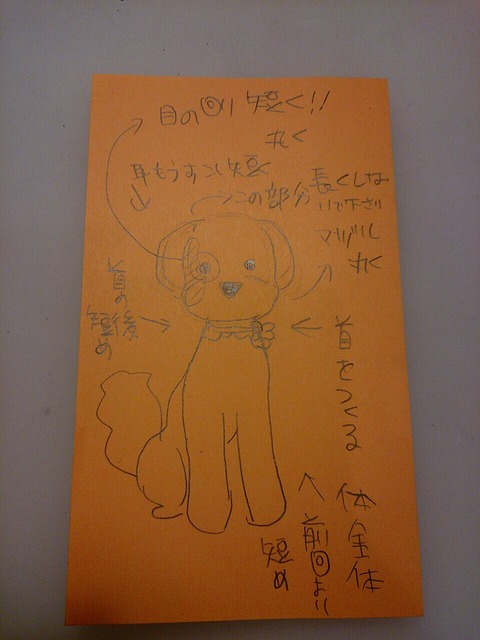 目の回り短く!!
丸く
耳もう少し短く
この部分
長くしな
いで下さい
マズル
丸く
首の後
短め
首をつくる
体全体
前回より
短め